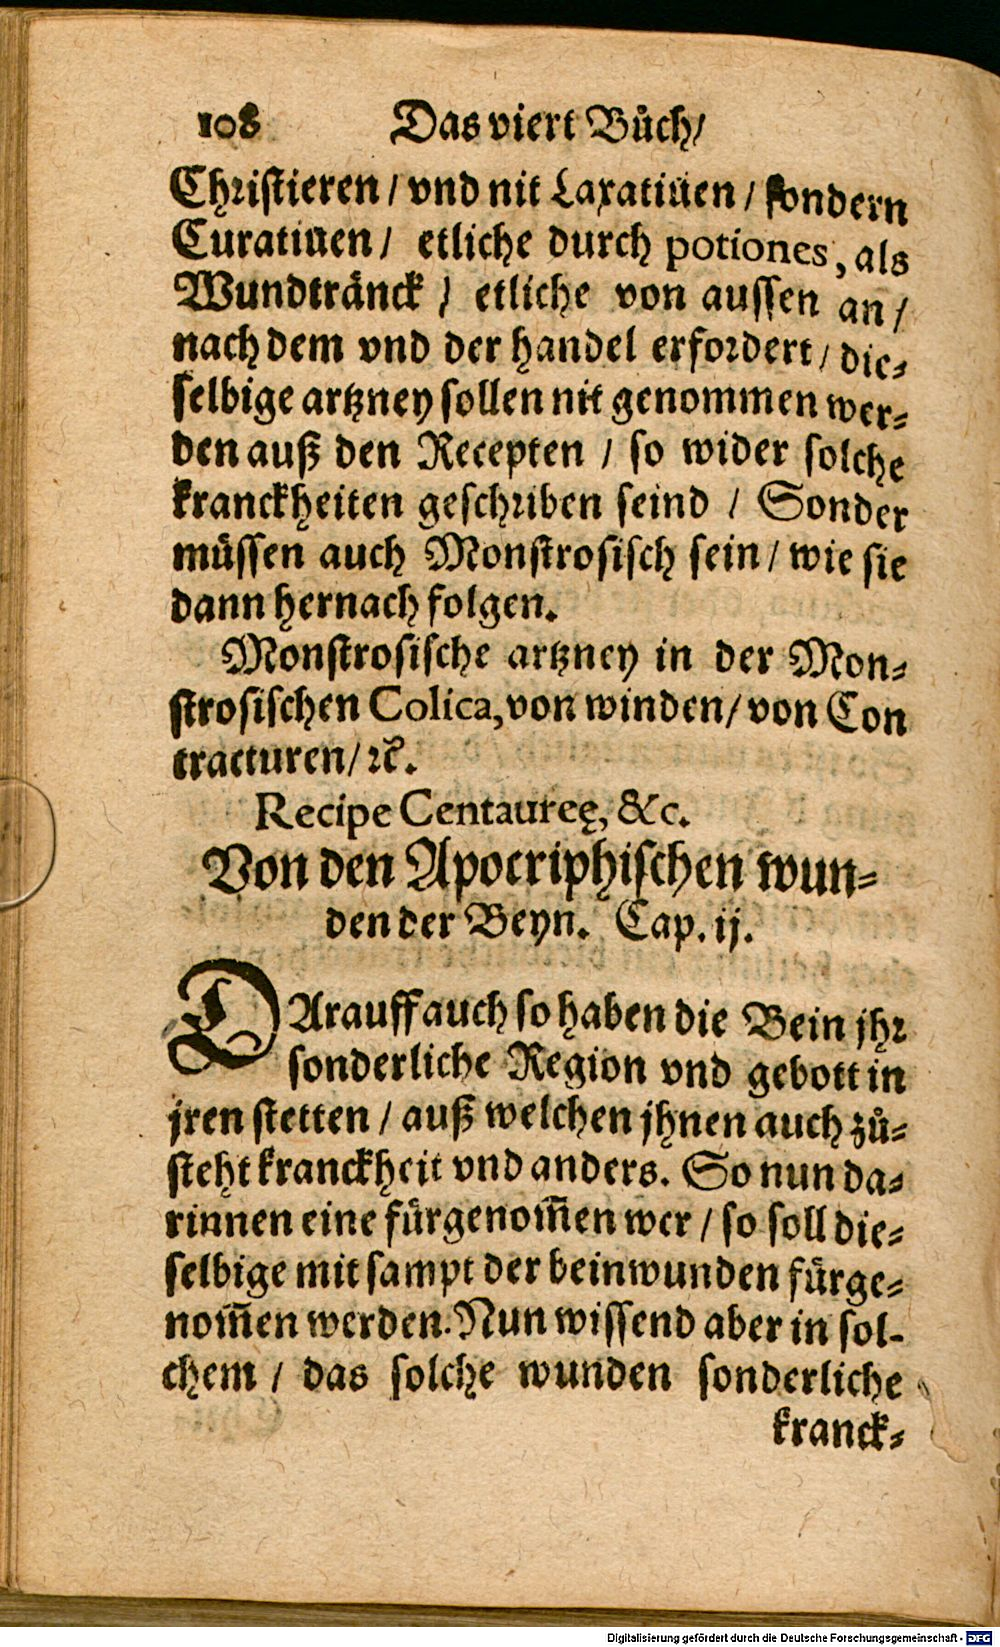 108 Das viert Bůch/
Christieren / vnd nit Laxatiuen / sondern
Curatiuen / etliche durch potiones, als
Wundtränck / etliche von aussen an /
nach dem vnd der handel erfordert / die-
selbige artzney sollen nit genommen wer-
den auß den Recepten / so wider solche
kranckheiten geschriben seind / Sonder
müssen auch Monstrosisch sein / wie sie
dann hernach folgen.
Monstrosische artzney in der Mon-
strosischen Colica, von winden / von Con
tracturen / ꝛc̃.
Recipe Centaureę, &c.
Von den Apocriphischen wun-
den der Beyn. Cap. ij.
DArauff auch so haben die Bein jhr
sonderliche Region vnd gebott in
jren stetten / auß welchen jhnen auch zů-
steht kranckheit vnd anders. So nun da-
rinnen eine fürgenom̃en wer / so soll die-
selbige mit sampt der beinwunden fürge-
nom̃en werden. Nun wissend aber in sol-
chem / das solche wunden sonderliche
kranck-
Digitalisierung gefördert durch die Deutsche Forschungsgemeinschaft - DFG